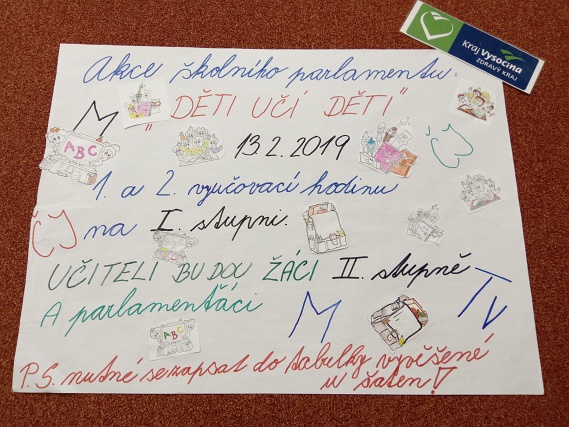 Akce školního parlamentu:
Kraj Vysočina
ZDRAVÝ KRAJ
M
„DĚTI UČÍ DĚTI"
ABC
13.2.2019
ČJ
1. a 2. vyučovací hodinu
ČJ
na I. stupni.
UČITELI BUDOU ŽÁCI II. stupně
A parlamenťáci
M
TV
ABC
P.S. nutné se zapsat do tabulky vyvěšené
u šaten!